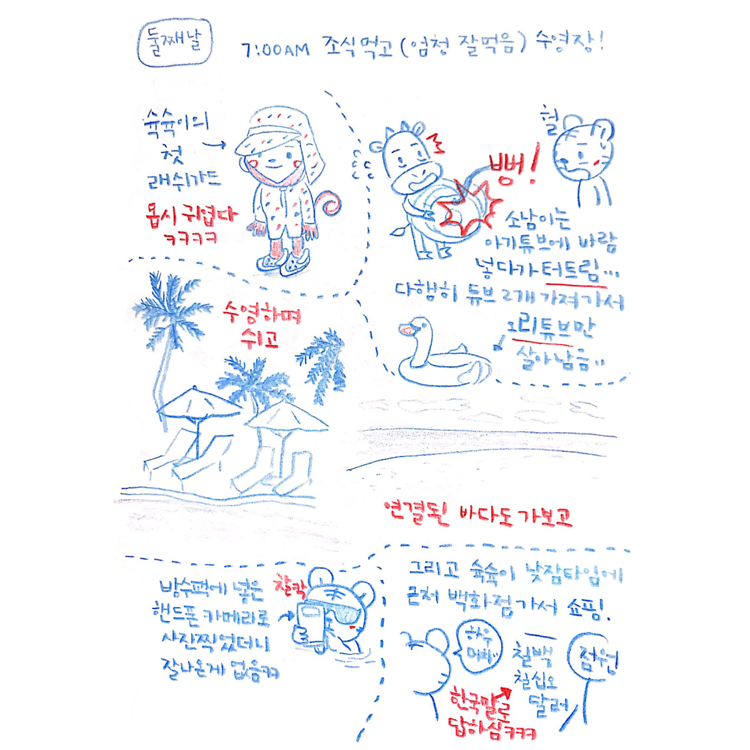 둘째날
7:00AM 조식먹고 (엄청 잘먹음) 수영장!
슉슉이의
첫
래쉬가드
몹시 귀엽다
ㅋㅋㅋㅋ
헐
뻥!
소남이는
아기튜브에 바람
넣다가 터트림...
다행히 튜브 2개 가져가서
오리튜브만
살아남음..
수영하며
쉬고
연결된 바다도 가보고
방수팩에 넣은
핸드폰 카메라로
사진찍었더니
잘나온게 없음ㅋㅋ
찰칵
그리고 슉슉이 낮잠타임에
근처 백화점 가서 쇼핑.
하우
머치?
칠백
칠십오
달러
점원
한국말로
답하심ㅋㅋㅋ